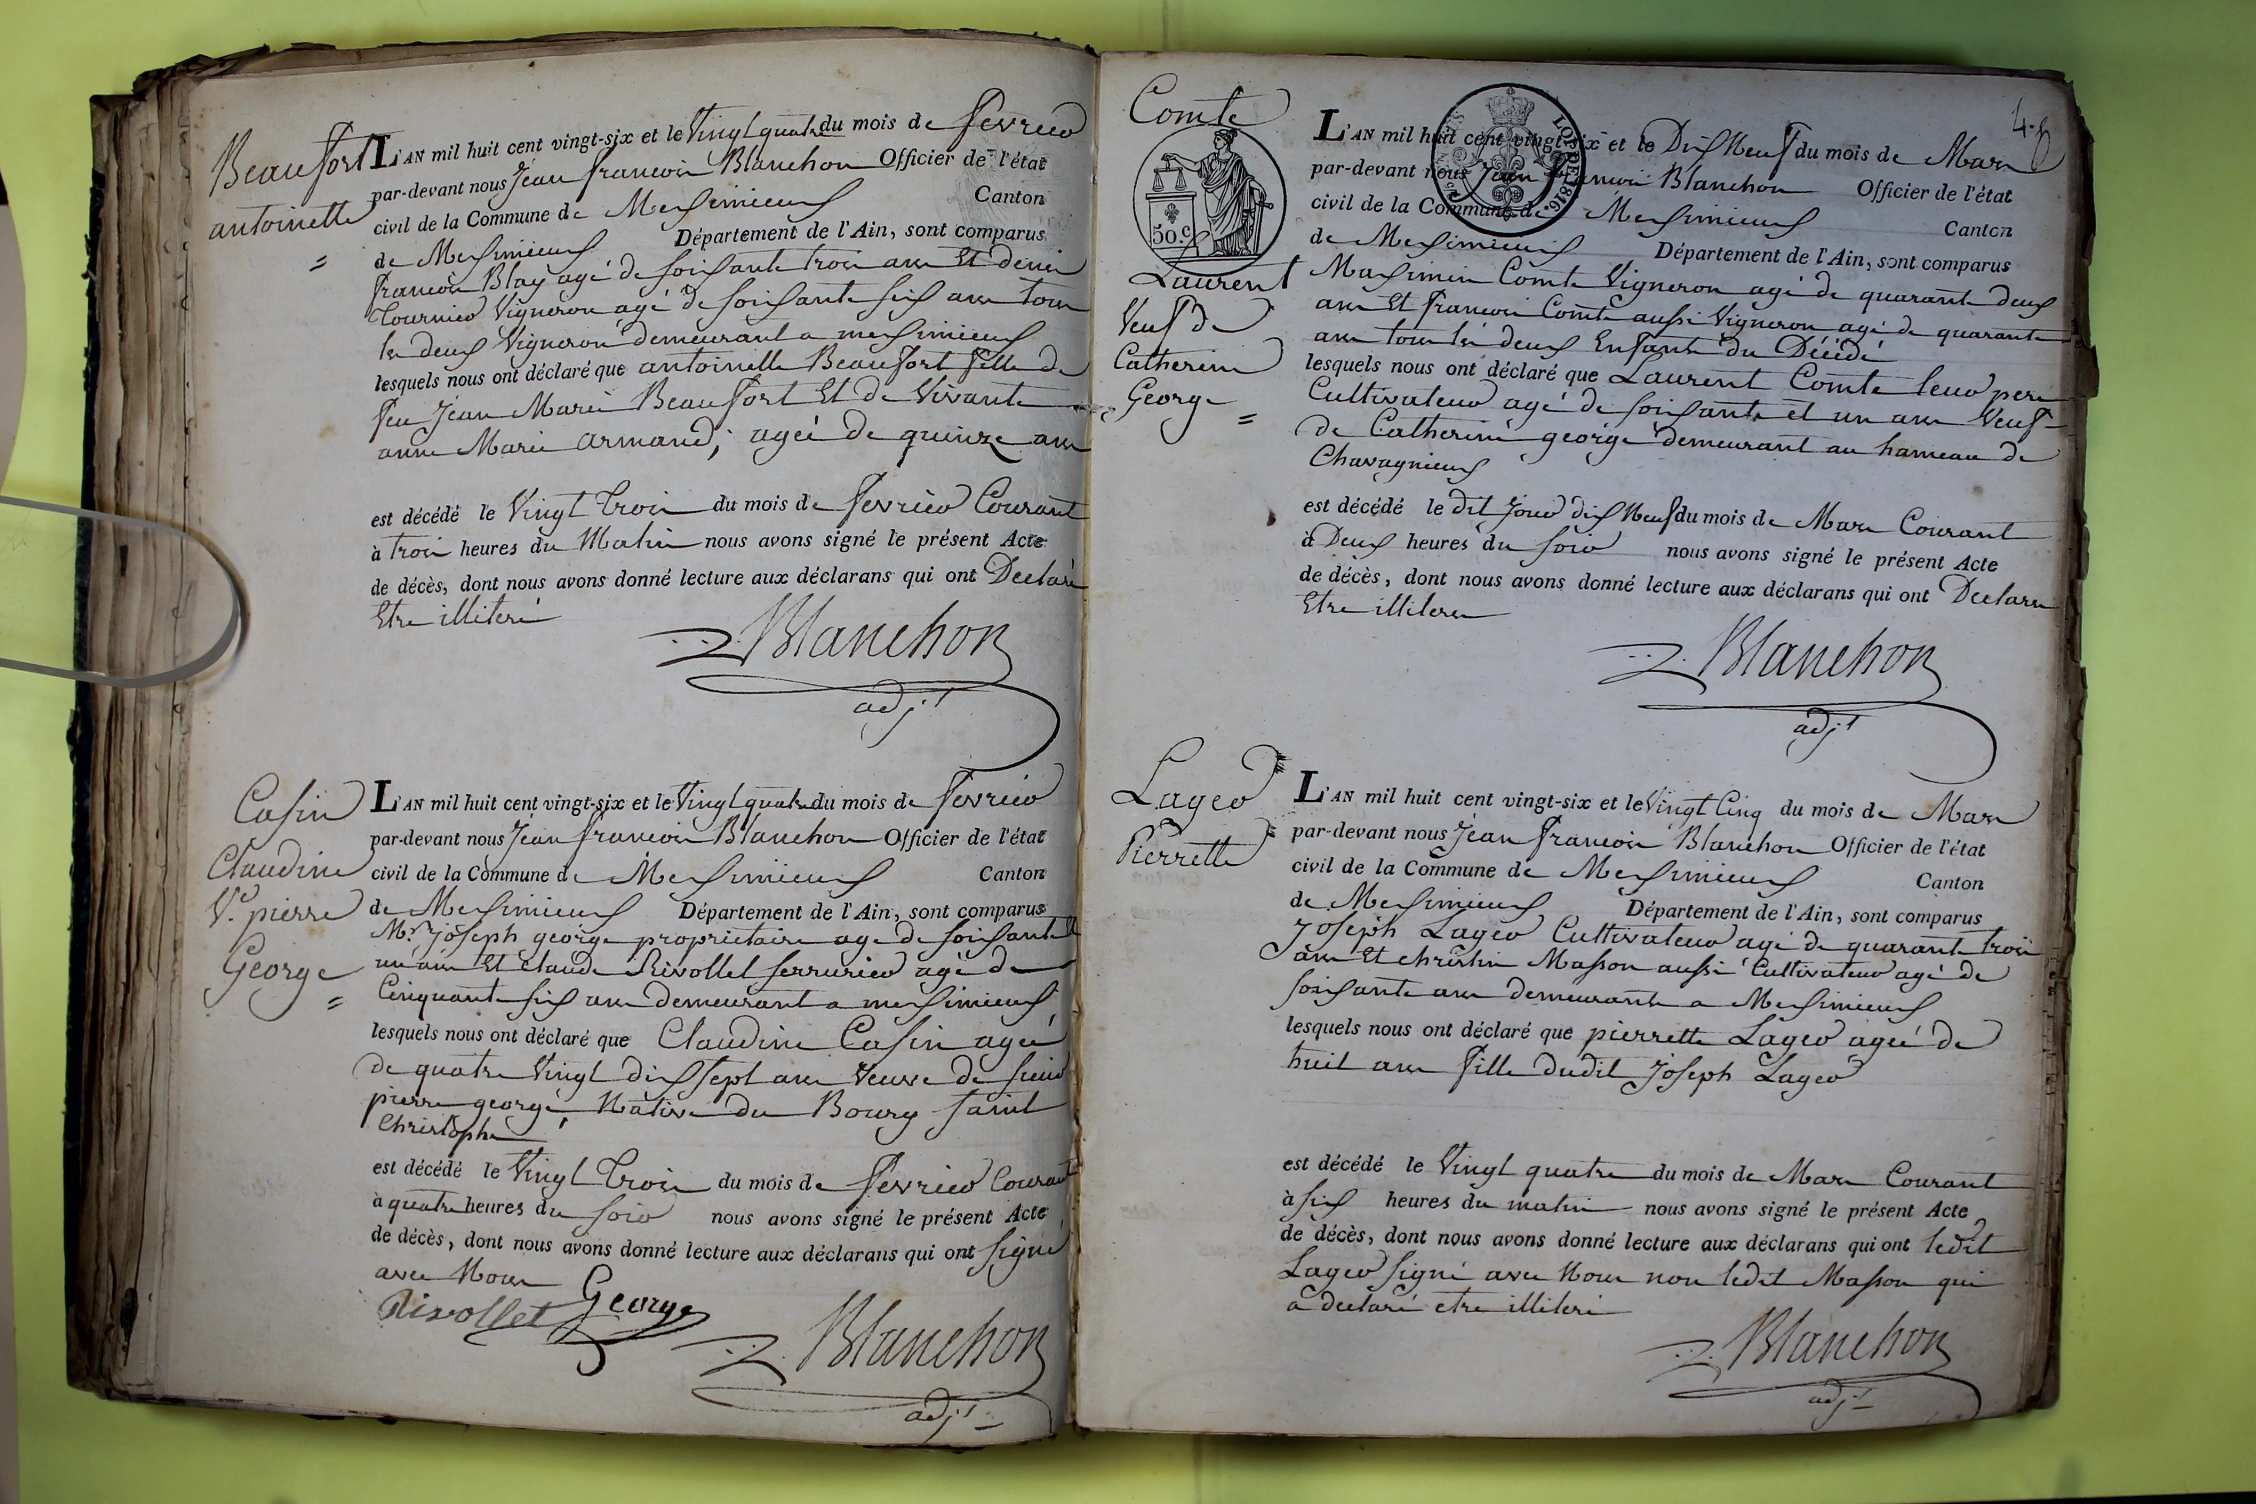 Beaufort
antoinette
=
L'AN mil huit cent vingt-six et le Vingt quatre du mois de fevrier
par-devant nous Jean francois Blanchon Officier de l'état
civil de la Commune de Messimieux Canton
de Messimieux Département de l'Ain, sont comparus
francois Blay agé de soissante trois ans Et denis
Tournier Vigneron agé de soissante six ans tous
les deux Vigneron demeurant a messimieux
lesquels nous ont déclaré que antoinette Beaufort fille de
feu Jean Marie Beaufort Et de Vivante
anne Marie armand; agée de quinze ans
est décédé le Vingt Trois du mois de fevrier Courant
à trois heures du Matin nous avons signé le présent Acte
de décès, dont nous avons donné lecture aux déclarans qui ont Declaré
Etre illiteré
Blanchon
adjt
Casin
Claudine
Ve. pierre
George
=
L'AN mil huit cent vingt-six et le Vingt quatre du mois de fevrier
par-devant nous Jean francois Blanchon Officier de l'état
civil de la Commune de Messimieux Canton
de Messimieux Département de l'Ain, sont comparus
Mr. Joseph george proprietaire age de soissante
un ans Et Claude Rivollet serrurier agé de
Cinquante six ans demeurant a messimieux
lesquels nous ont déclaré que Claudine Casin agée
de quatre Vingt dix sept ans Veuve de sieur
pierre george, Native du Bourg saint
Christophe
est décédé le Vingt Trois du mois de fevrier Courant
à quatre heures du soir nous avons signé le présent Acte
de décès, dont nous avons donné lecture aux déclarans qui ont signé
avec Nous George
Rivollet
Blanchon
adjt
Comte
50.c
Laurent
Veuf de
Catherine
George
=
LOI DE 1816.
L'AN mil huit cent vingt-six et le Dix Neuf du mois de Mars
par-devant nous Jean francois Blanchon Officier de l'état
civil de la Commune de Messimieux Canton
de Messimieux Département de l'Ain, sont comparus
Massimin Comte Vigneron agé de quarante deux
ans Et francois Comte aussi Vigneron agé de quarante
ans tous les deux Enfants du Décédé
lesquels nous ont déclaré que Laurent Comte leur pere
Cultivateur agé de soissante et un ans Veuf
de Catherine george demeurant au hameau de
Chavagnieux
est décédé le dit Jour dix Neuf du mois de Mars Courant
à Deux heures du soir nous avons signé le présent Acte
de décès, dont nous avons donné lecture aux déclarans qui ont Declare
Etre illiteres
Blanchon
adjt
Lager
Pierrette
L'AN mil huit cent vingt-six et le Vingt Cinq du mois de Mars
par-devant nous Jean francois Blanchon Officier de l'état
civil de la Commune de Messimieux Canton
de Messimieux Département de l'Ain, sont comparus
Joseph Lager Cultivateur agé de quarante trois
ans Et christin Masson aussi Cultivateur agé de
soissante ans demeurants a Messimieux
lesquels nous ont déclaré que pierrette Lager agée de
huit ans fille dudit Joseph Lager
est décédé le Vingt quatre du mois de Mars Courant
à six heures du matin nous avons signé le présent Acte
de décès, dont nous avons donné lecture aux déclarans qui ont ledit
Lager signé avec Nous non ledit Masson qui
a declaré etre illiteré
Blanchon
adjt